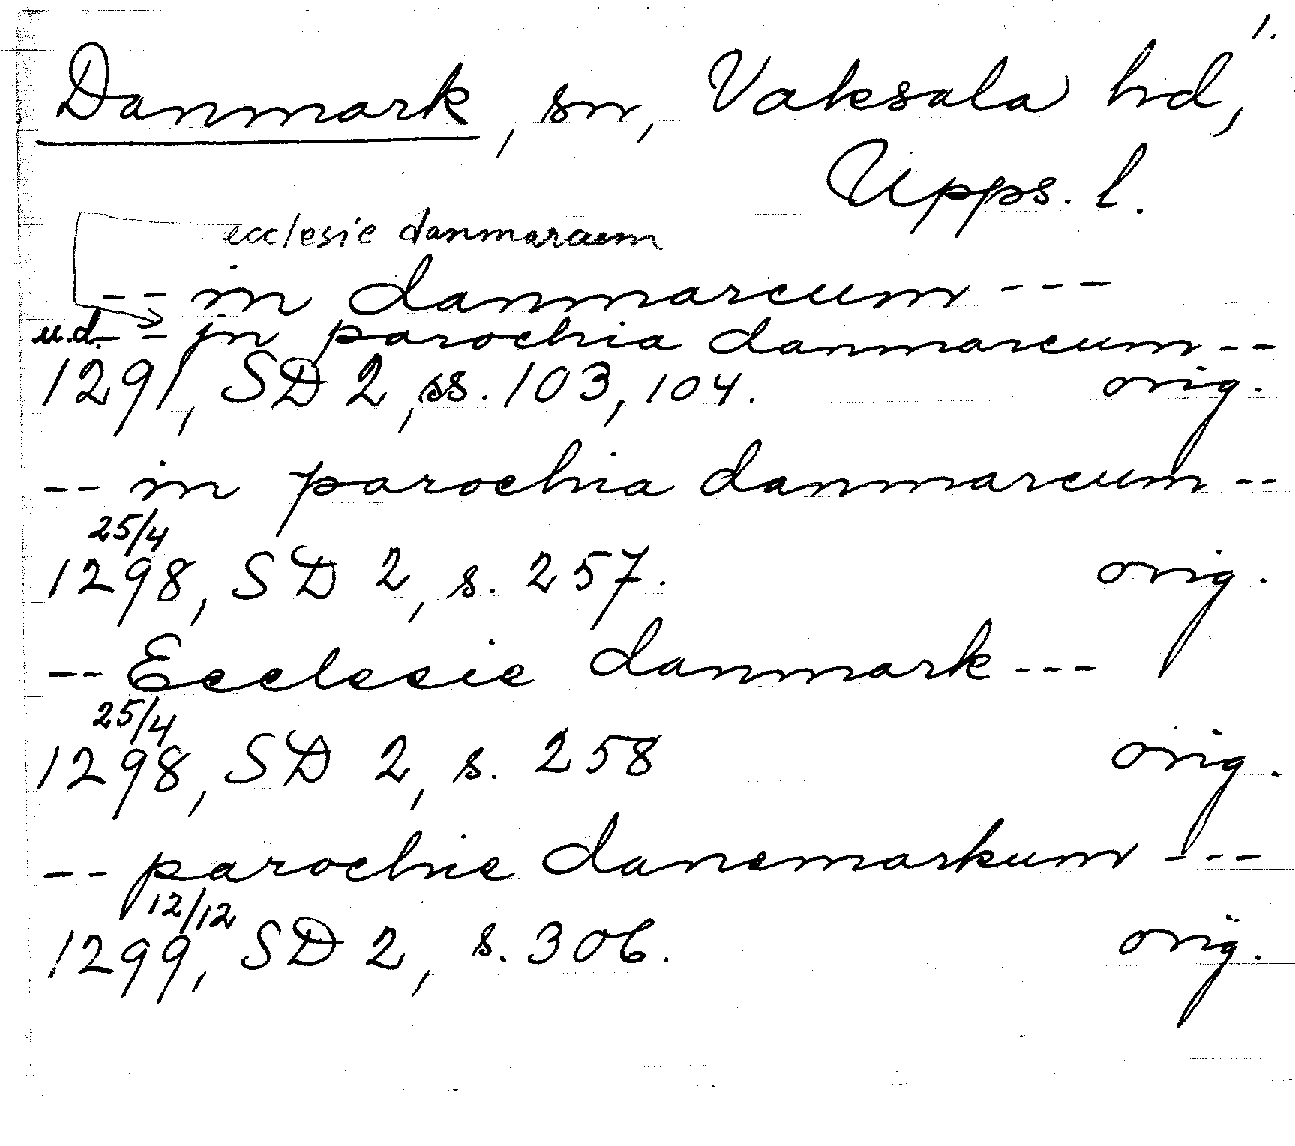 1.
Danmark, sn, Vaksala hd,
Upps. l.
ecclesie danmarcum
-- in danmarcum ---
u.d. - - in parochia danmarcum --
1291, SD 2, ss. 103, 104. orig.
-- in parochia danmarcum --
25/4
1298, SD 2, s. 257. orig.
-- Ecclesie danmark ---
25/4
1298, SD 2, s. 258 orig.
-- parochie danemarkum ---
12/12
1299, SD 2, s. 306. orig.